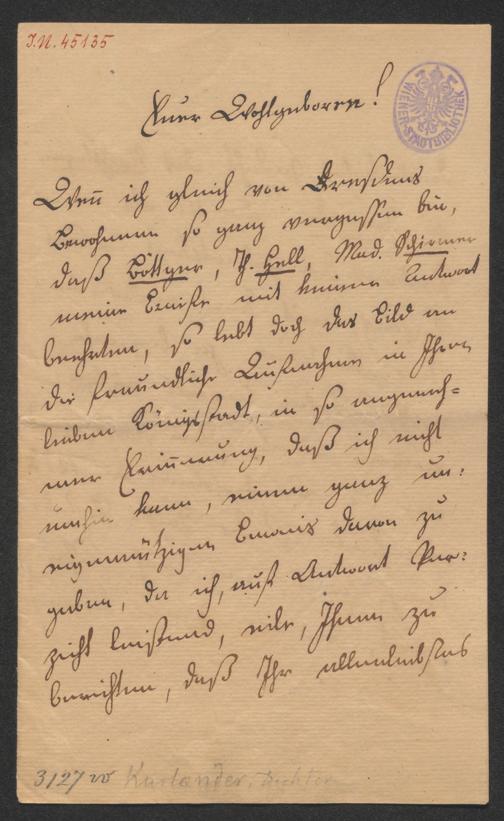 I.N. 45135
WIENER STADTBIBLIOTHEK
Euer Wohlgeboren!
Wenn ich gleich von Dresdens
Bewohnern so ganz vergessen bin,
daß Böttger, Th. Hell, Mad. Schirmer
meine Briefe mit keiner Antwort
beehrten, so lebt doch das Bild an
die freundliche Aufnahme in Ihrer
lieben Königsstadt, in so angeneh=
mer Erinnerung, daß ich nicht
umhin kann, einen ganz un=
eigennützigen Beweis davon zu
geben, da ich, auf Antwort Ver=
zicht leistend, eile, Ihnen zu
berichten, daß Ihr allerliebstes
3127 Kurländer, Dichter